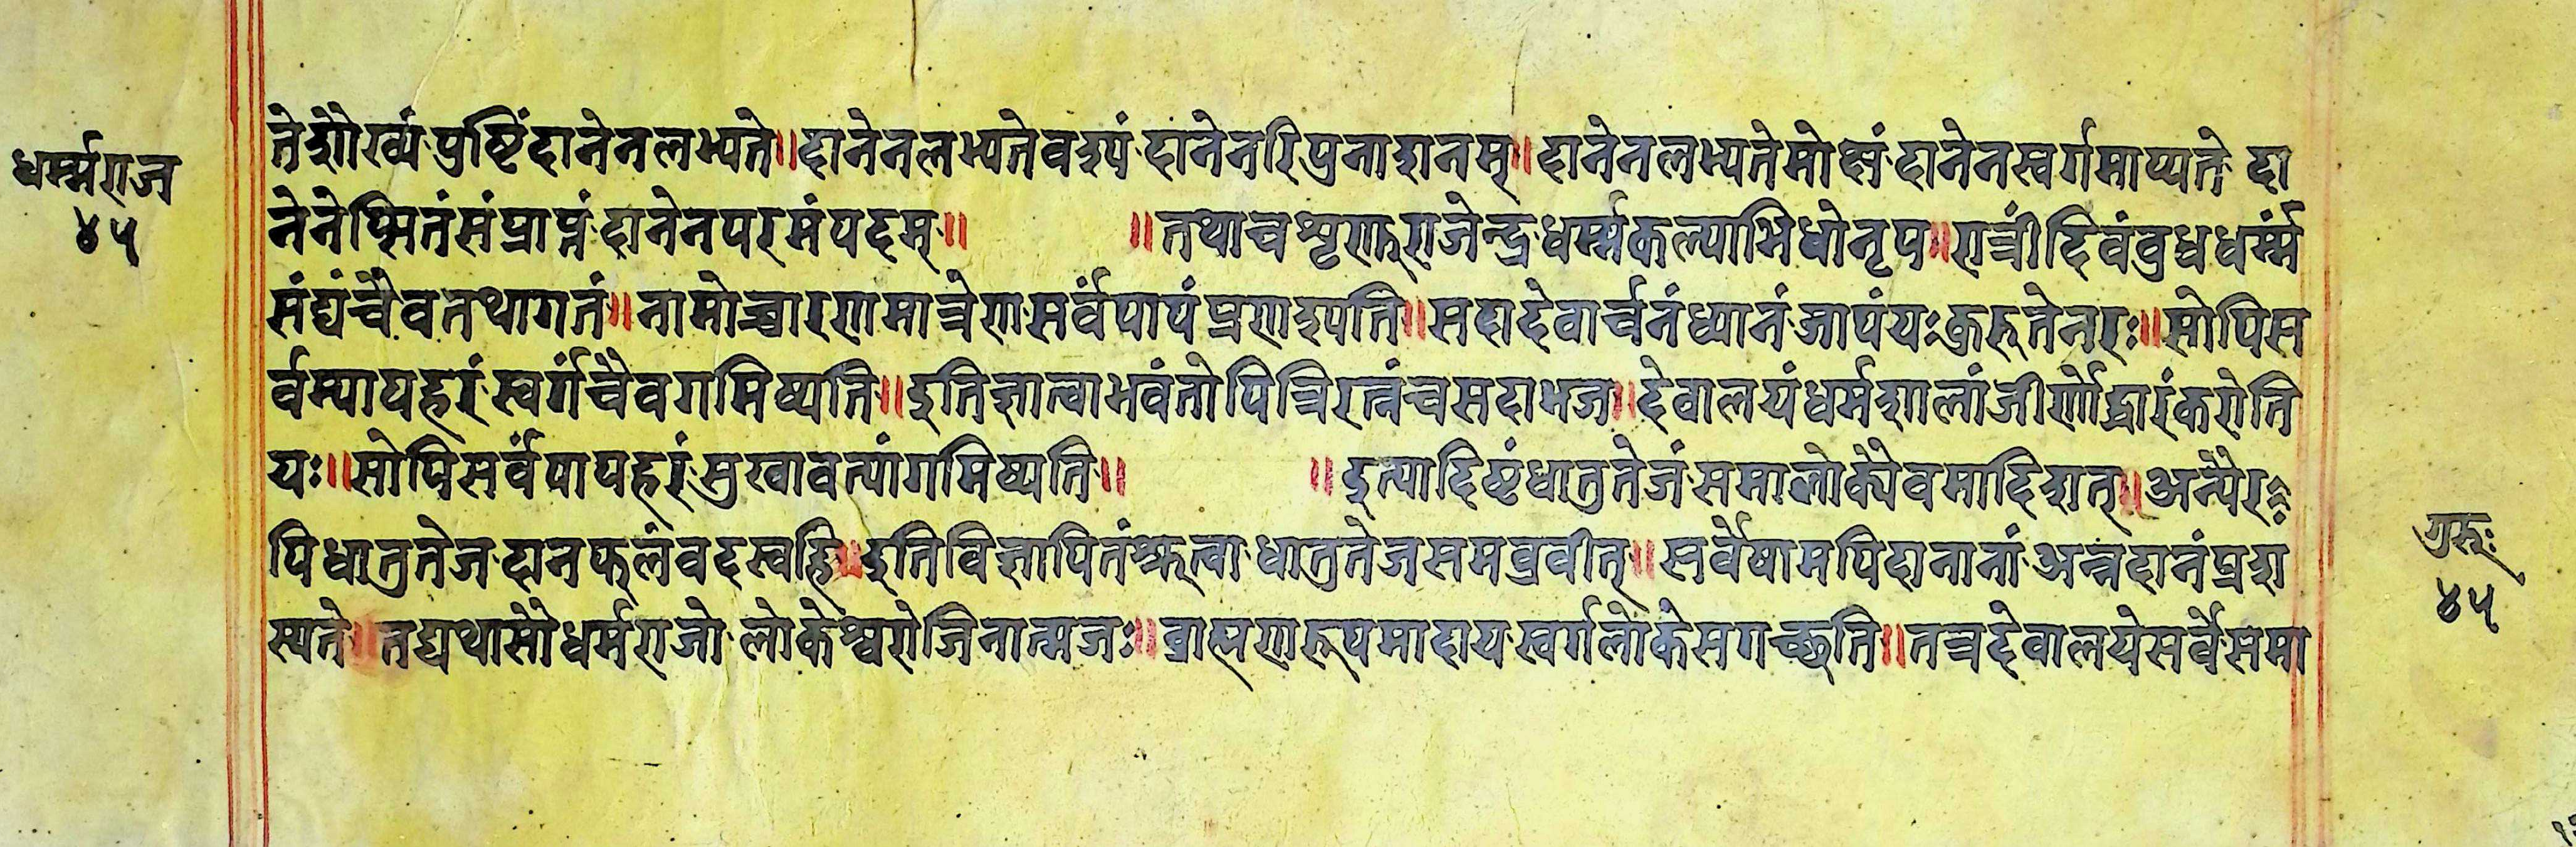 धर्म्मराज
४५
ते शौर्य्यं पुष्टिं दानेन लभ्यते॥ दानेन लभ्यते वश्यं दानेन रिपुनाशनम्॥ दानेन लभ्यते मोक्षं दानेन स्वर्गमाप्यते दा
नेनेप्सितं संप्राप्नं दानेन परमं पदम्॥ ॥ तथा च शृणु राजेन्द्र धर्म्मकल्याभिधो नृप॥ रात्रीं दिवं बुध धर्म्मं
संघं चैव तथागतं॥ नामोच्चारणमात्रेण सर्वं पापं प्रणश्यति॥ सदा देवार्चनं ध्यानं जापं यः कुरुते नरः॥ सोपि स
र्वम्पापहरं स्वर्गं चैव गमिष्यति॥ इति ज्ञात्वा भवंतोपि त्रिरत्नं च सदा भज॥ देवालयं धर्मशालां जीर्णोद्धारं करोति
यः॥ सोपि सर्वं पापहरं सुखावत्यां गमिष्यति॥ ॥ इत्यादिष्टं धातुतेजं समालोक्यैवमादिशत्॥ अन्यैर
पि धातुतेज दानफलं वदस्वहि॥ इति विज्ञापितं श्रुत्वा धातुतेजसमब्रवीत्॥ सर्वेषामपि दानानां अन्नदानं प्रशा
स्यते॥ तद्यथासौ धर्मराजो लोकेश्वरो जिनात्मजः॥ ब्राह्मणरूपमादाय स्वर्गलोके स गच्छति॥ तत्र देवालये सर्वे समा
गुरूः
४५